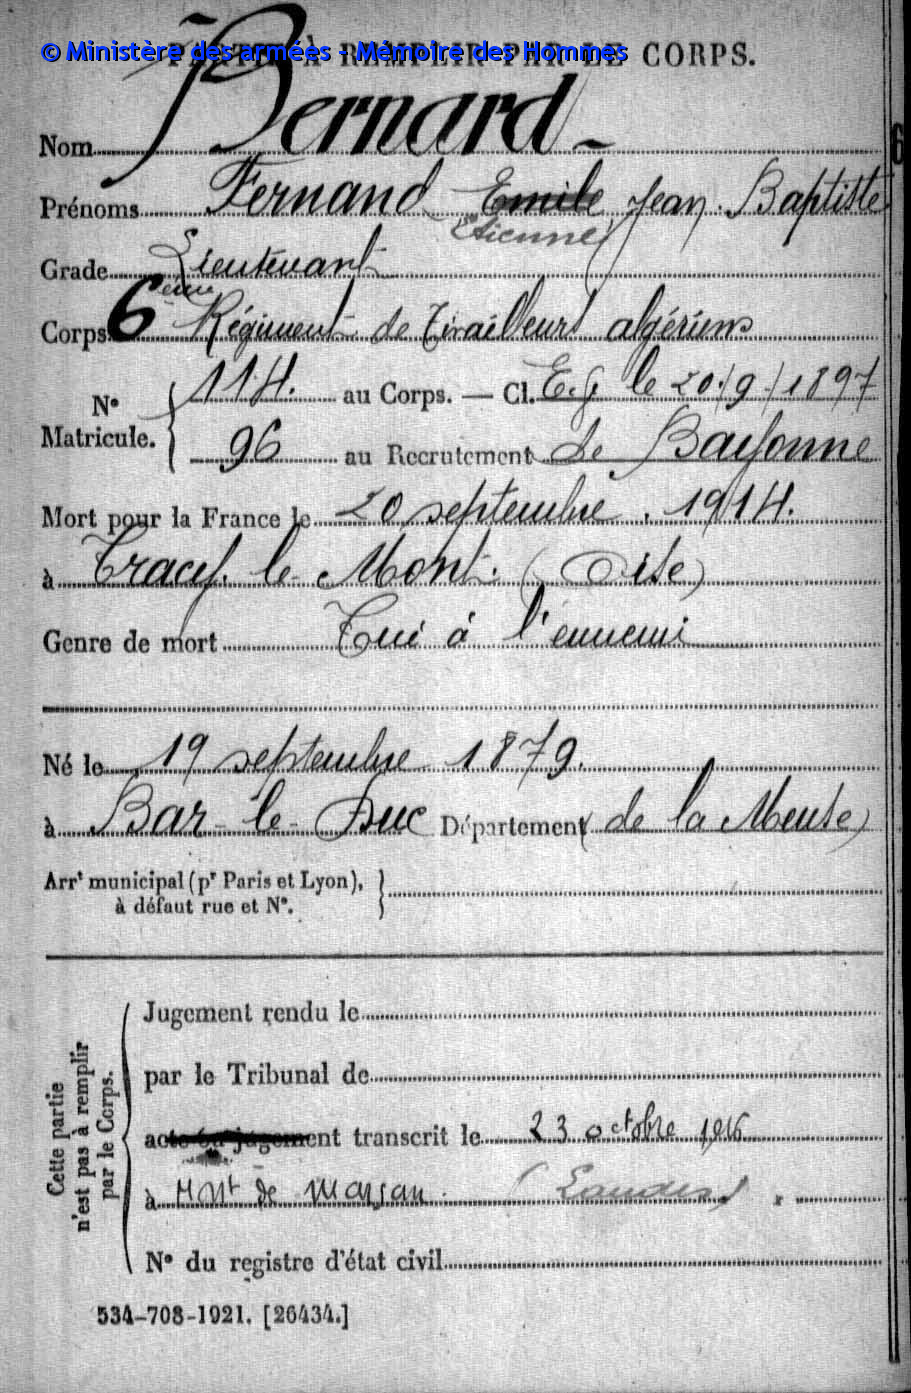 © Ministère des armées - Mémoire des Hommes
PARTIE À REMPLIR PAR LE CORPS.
Nom Bernard
Prénoms Fernand Emile Jean Baptiste
Etienne
Grade Lieutenant
Corps 6ème Régiment de Tirailleurs algériens
N° Matricule. 114. au Corps. — Cl. E.g le 20/9/1897
96 au Recrutement de Bayonne
Mort pour la France le 20 septembre 1914.
à Tracy le Mont. (Oise)
Genre de mort Tué à l'ennemi
Né le 19 septembre 1879.
à Bar-le-Duc Département (de la Meuse)
Arrt municipal (pr Paris et Lyon),
à défaut rue et N°.
Cette partie
n'est pas à remplir
par le Corps.
Jugement rendu le
par le Tribunal de
acte ou jugement transcrit le 23 octobre 1916
à Mnt de Marsan (Landes)
N° du registre d'état civil
534-708-1921. [26434.]